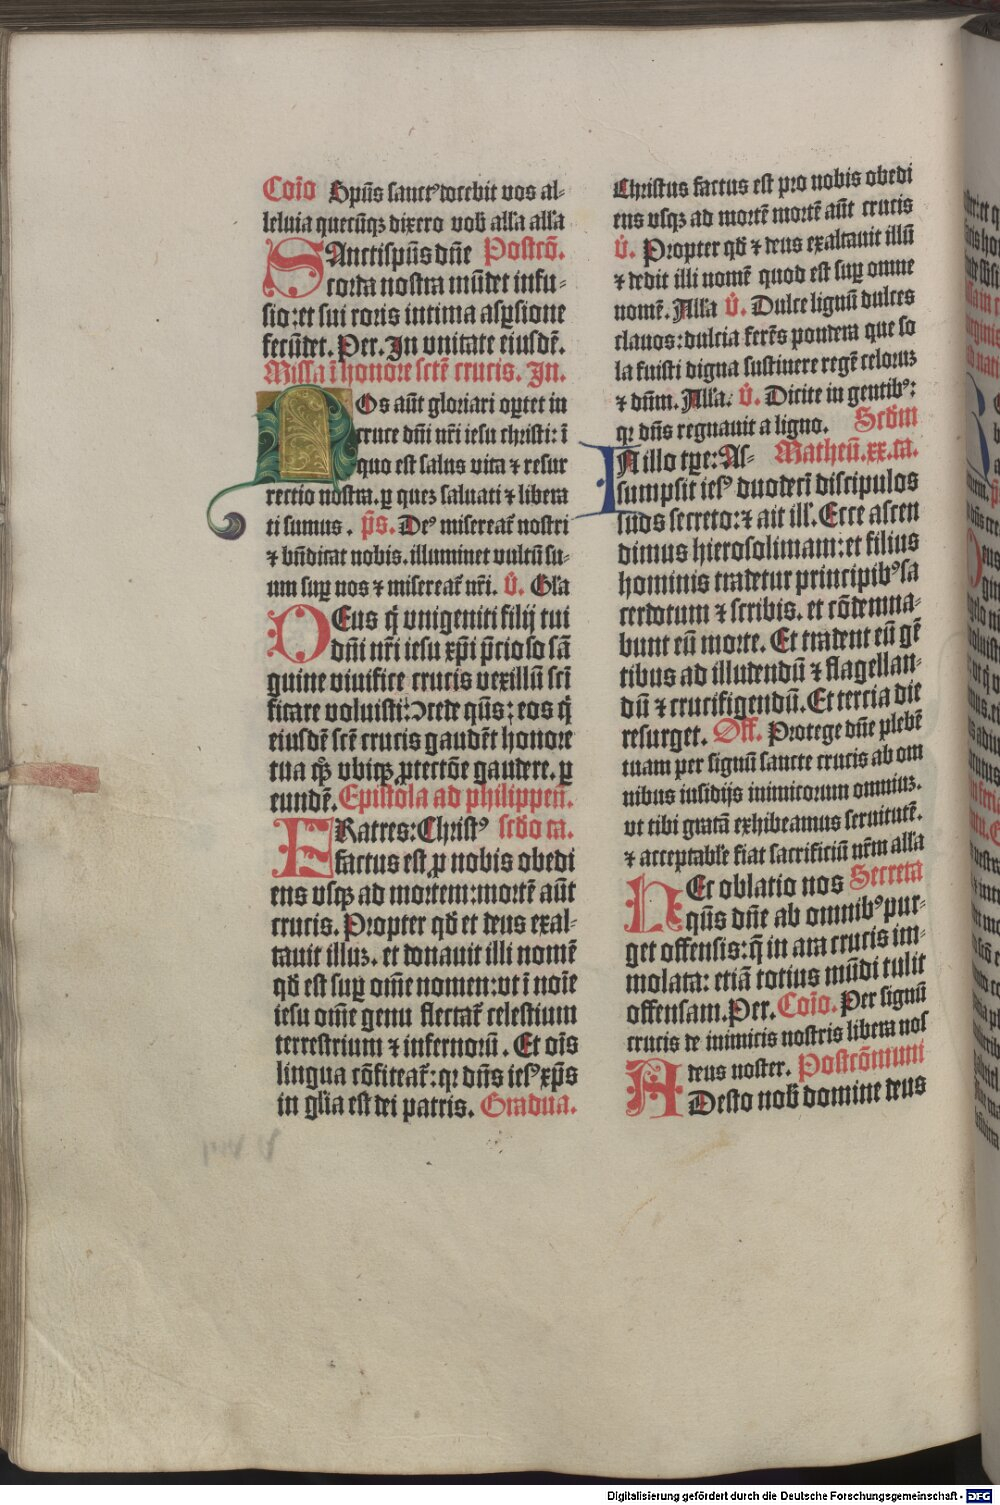 Coīo Spūs sanctꝰ docebit vos al-
leluia quecūqꝫ dixero vob̄ alła alła
SAnctispūs dn̄e Postcō.
corda nostra mūdet infu-
sio: et sui roris intima aspsione
fecūdet. Per. In vnitate eiusdē.
Missa ī honore sctē crucis. In.
NOs aūt gloriari optet in
cruce dn̄i nr̄i iesu christi: ī
quo est salus vita ⁊ resur
rectio nostra. ꝑ quez saluati ⁊ libera
ti sumus. p̄s. Deꝰ misereat̄ nostri
⁊ bn̄dicat nobis. illuminet vultū su-
um suꝑ nos ⁊ misereat̄ nr̄i. v̄. Gła
DEus q̄ vnigeniti filij tui
dn̄i nr̄i iesu xp̄i p̄cioso sā
guine viuifice crucis vexillū sci
ficare voluisti: ꝯcede qūs: eos q̄
eiusdē scē crucis gaudēt honore
tua qꝫ vbiqꝫ ꝓtectōe gaudere. ꝑ
eundē. Epistola ad philippeñ.
FRatres: Christꝰ scđo ca.
factus est ꝓ nobis obedi
ens vsqꝫ ad mortem: mortē aūt
crucis. Propter qđ et deus exal-
tauit illuz. et donauit illi nomē
qđ est suꝑ om̄e nomen: vt ī noīe
iesu om̄e genu flectat̄ celestium
terrestrium ⁊ infernorū. Et oīs
lingua cōfiteat̄: qꝛ dn̄s iesꝰ xp̄s
in gło̅ia est dei patris. Gradua.
Christus factus est pro nobis obedi
ens vsqꝫ ad mortē mortē aūt crucis
v̄. Propter qđ ⁊ deus exaltauit illū
⁊ dedit illi nomē quod est suꝑ omne
nomē. Alła v̄. Dulce lignū dulces
clauos: dulcia ferēs pondera que so
la fuisti digna sustinere regē celoruz
⁊ dn̄m. Alła. v̄. Dicite in gentibꝰ:
qꝛ dn̄s regnauit a ligno. Scdm
IN illo tꝑe: As- Matheū. xx. ca.
sumpsit iesꝰ duodeci discipulos
suos secreto: ⁊ ait ill̄. Ecce ascen
dimus hierosolimam: et filius
hominis tradetur principibꝰ sa
cerdotum ⁊ scribis. et cōdemna-
bunt eū morte. Et tradent eū gē
tibus ad illudendū ⁊ flagellan-
dū ⁊ crucifigendū. Et tercia die
resurget. Off. Protege dn̄e plebē
tuam per signū sancte crucis ab om
nibus insidijs inimicorum omniuz.
vt tibi gratā exhibeamus seruitutē.
⁊ acceptabłe fiat sacrificiū nr̄m alła
HEc oblatio nos Secreta
qūs dn̄e ab omnibꝰ pur-
get offensis: q̄ in ara crucis im-
molata: etiā totius mūdi tulit
offensam. Per. Coīo. Per signū
crucis de inimicis nostris libera nos
deus noster. Postcōmuni
ADesto nob̄ domine deus
Digitalisierung gefördert durch die Deutsche Forschungsgemeinschaft - DFG